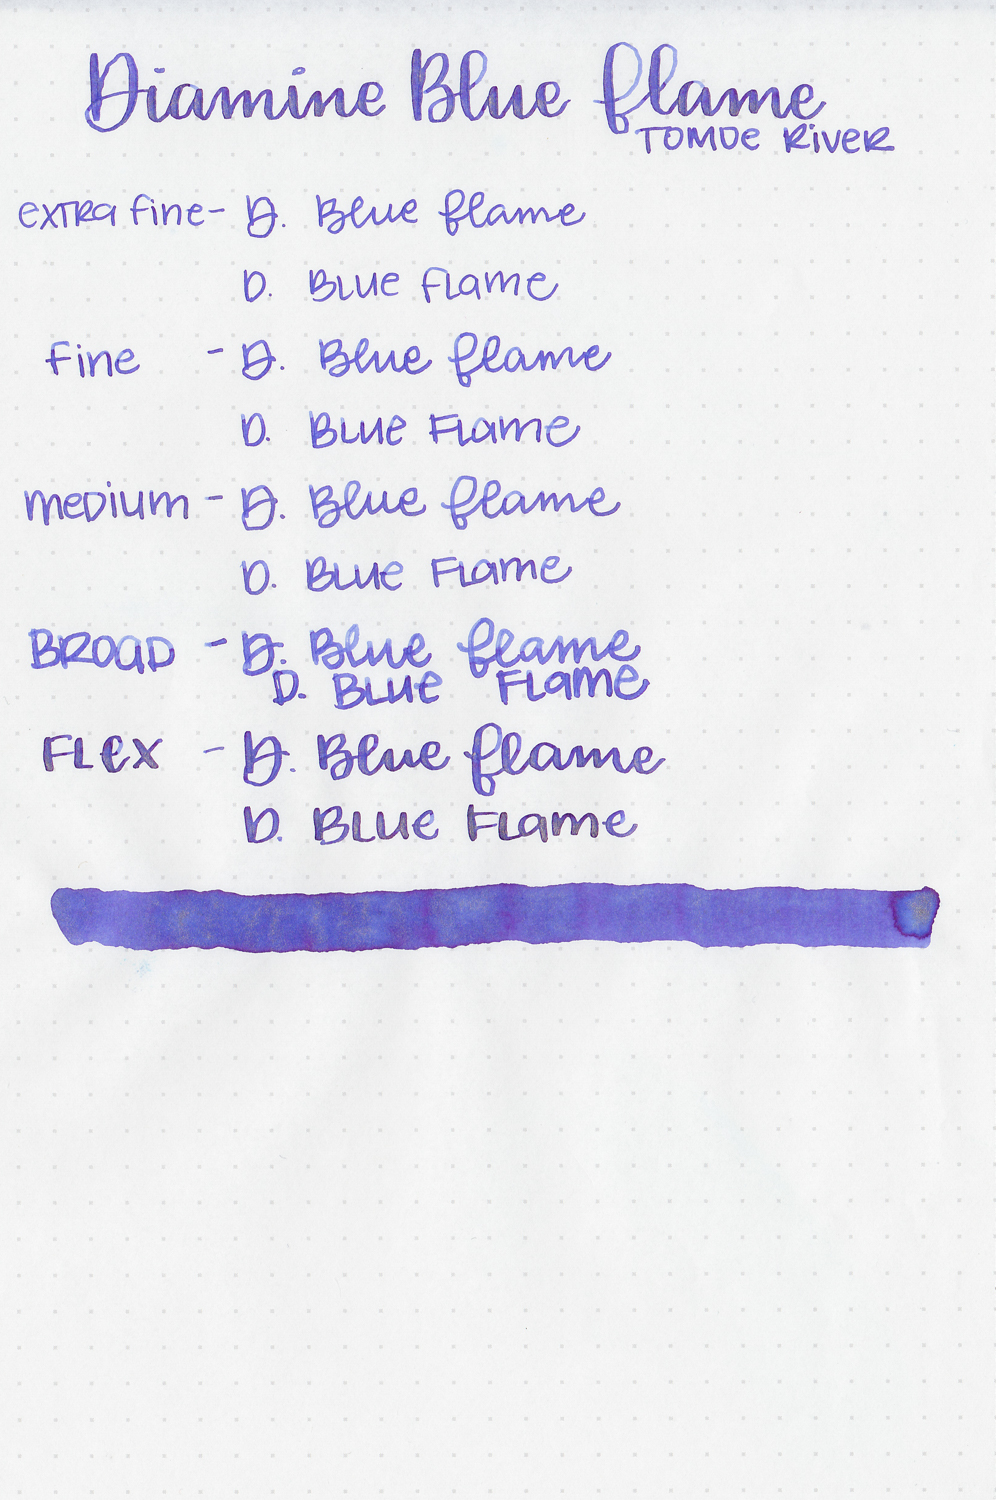 Diamine Blue flame
TOMOE RiveR
extra fine - D. Blue flame
D. Blue flame
fine - D. Blue flame
D. Blue Flame
medium - D. Blue flame
D. Blue Flame
BROAD - D. Blue flame
D. Blue Flame
FLex - D. Blue flame
D. BLUe FLame